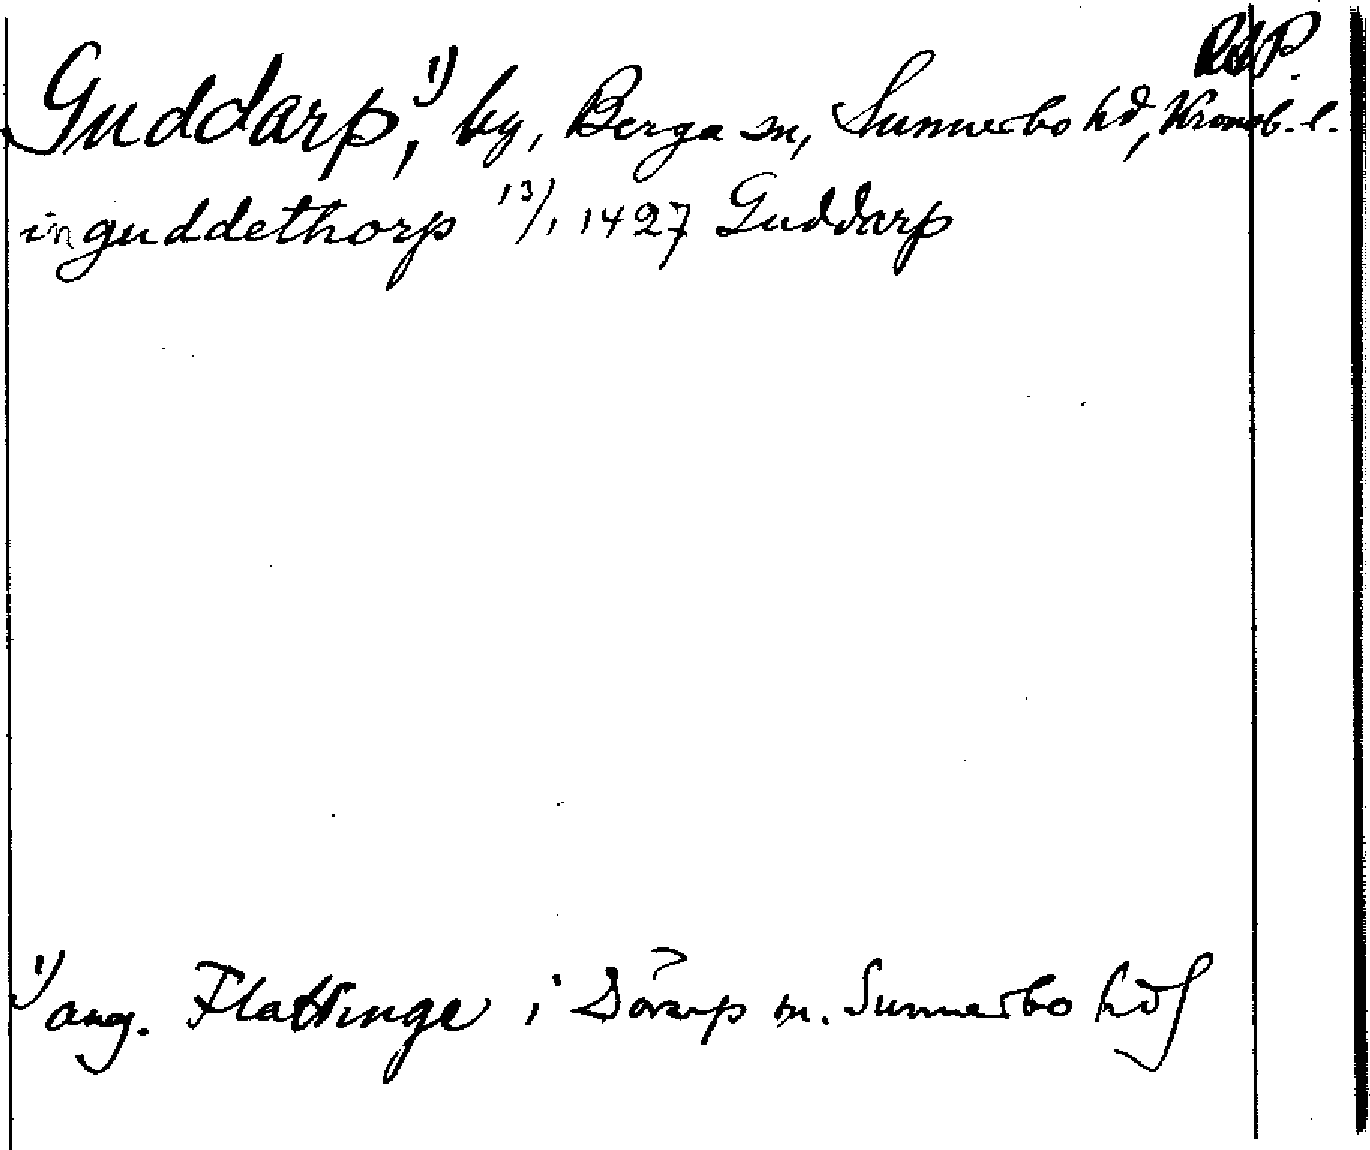 RAP.
Guddarp,¹⁾ by, Berga sn, Sunnerbo hd, Kronob. l.
in guddethorp 13/1 1427 Guddarp
¹⁾ ang. Flattinge i Dörarp sn. Sunnerbo hd